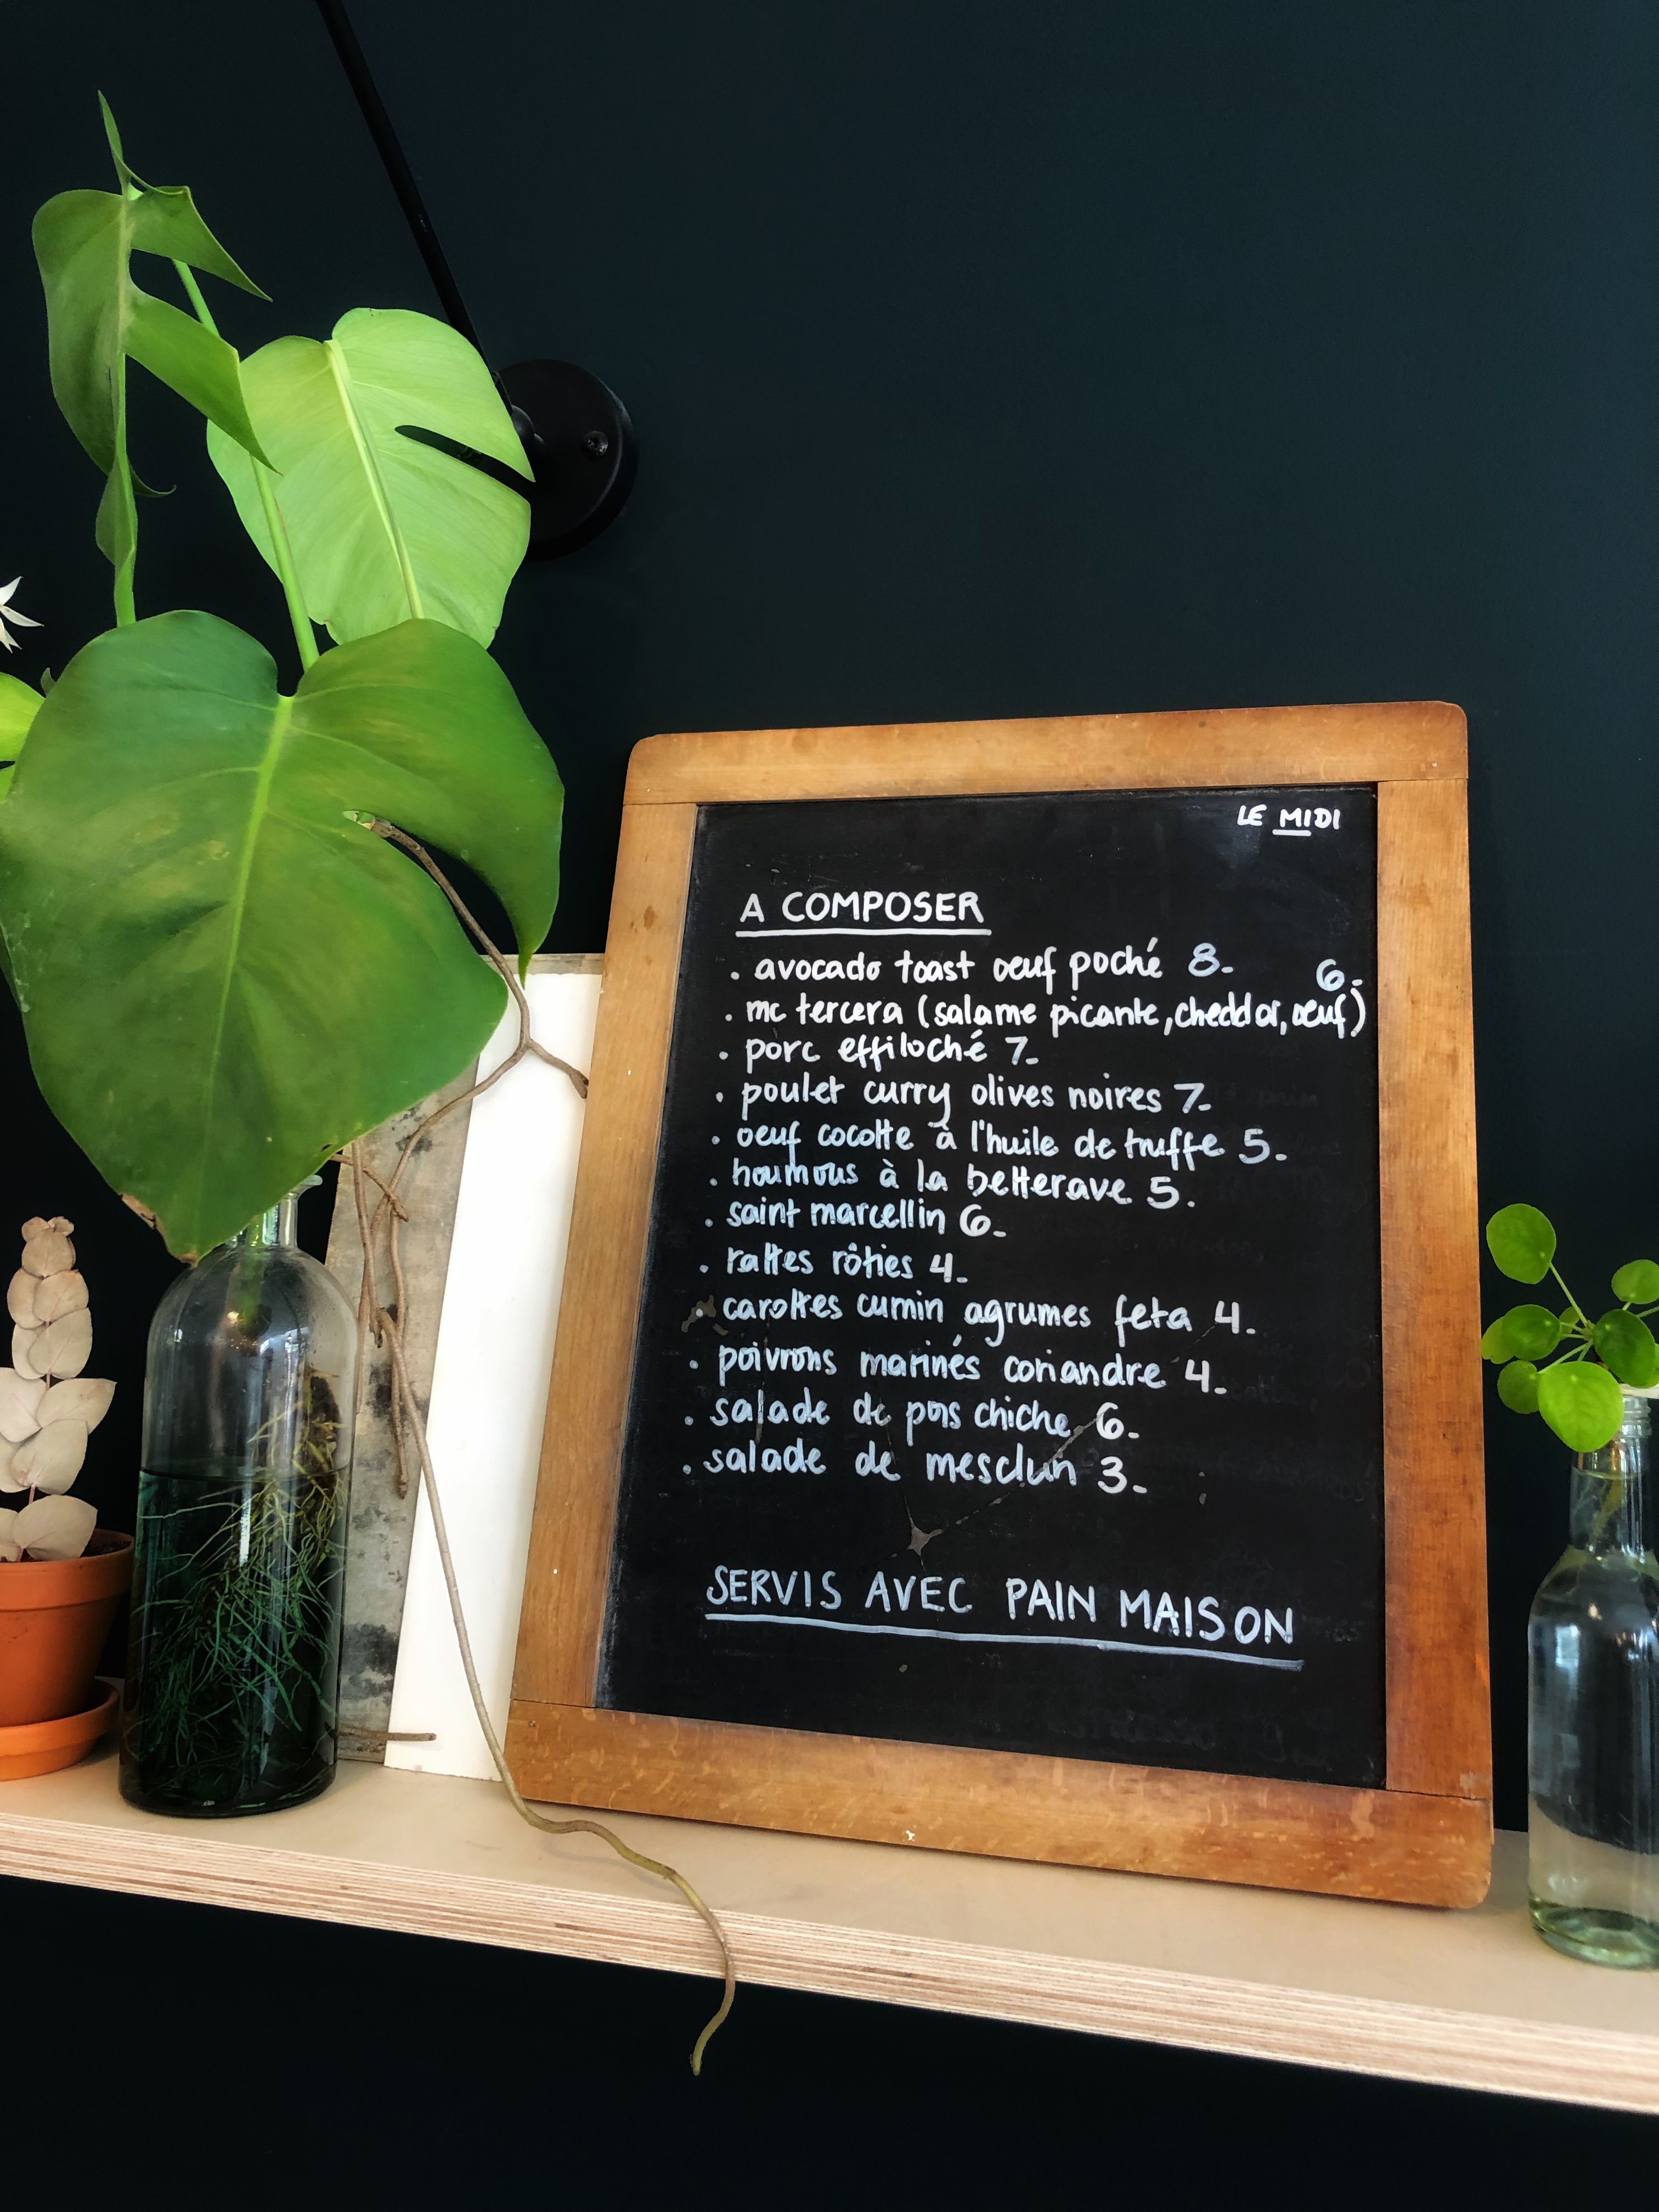 LE MIDI
A COMPOSER
. avocado toast oeuf poché 8.
6.
. mc tercera (salame picante, cheddar, oeuf)
. porc effiloché 7.
. poulet curry olives noires 7.
. oeuf cocotte à l'huile de truffe 5.
. houmous à la betterave 5.
. saint marcellin 6.
. rattes rôties 4.
. carottes cumin agrumes feta 4.
. poivrons marinés coriandre 4.
. salade de pois chiche 6.
. salade de mesclun 3.
SERVIS AVEC PAIN MAISON